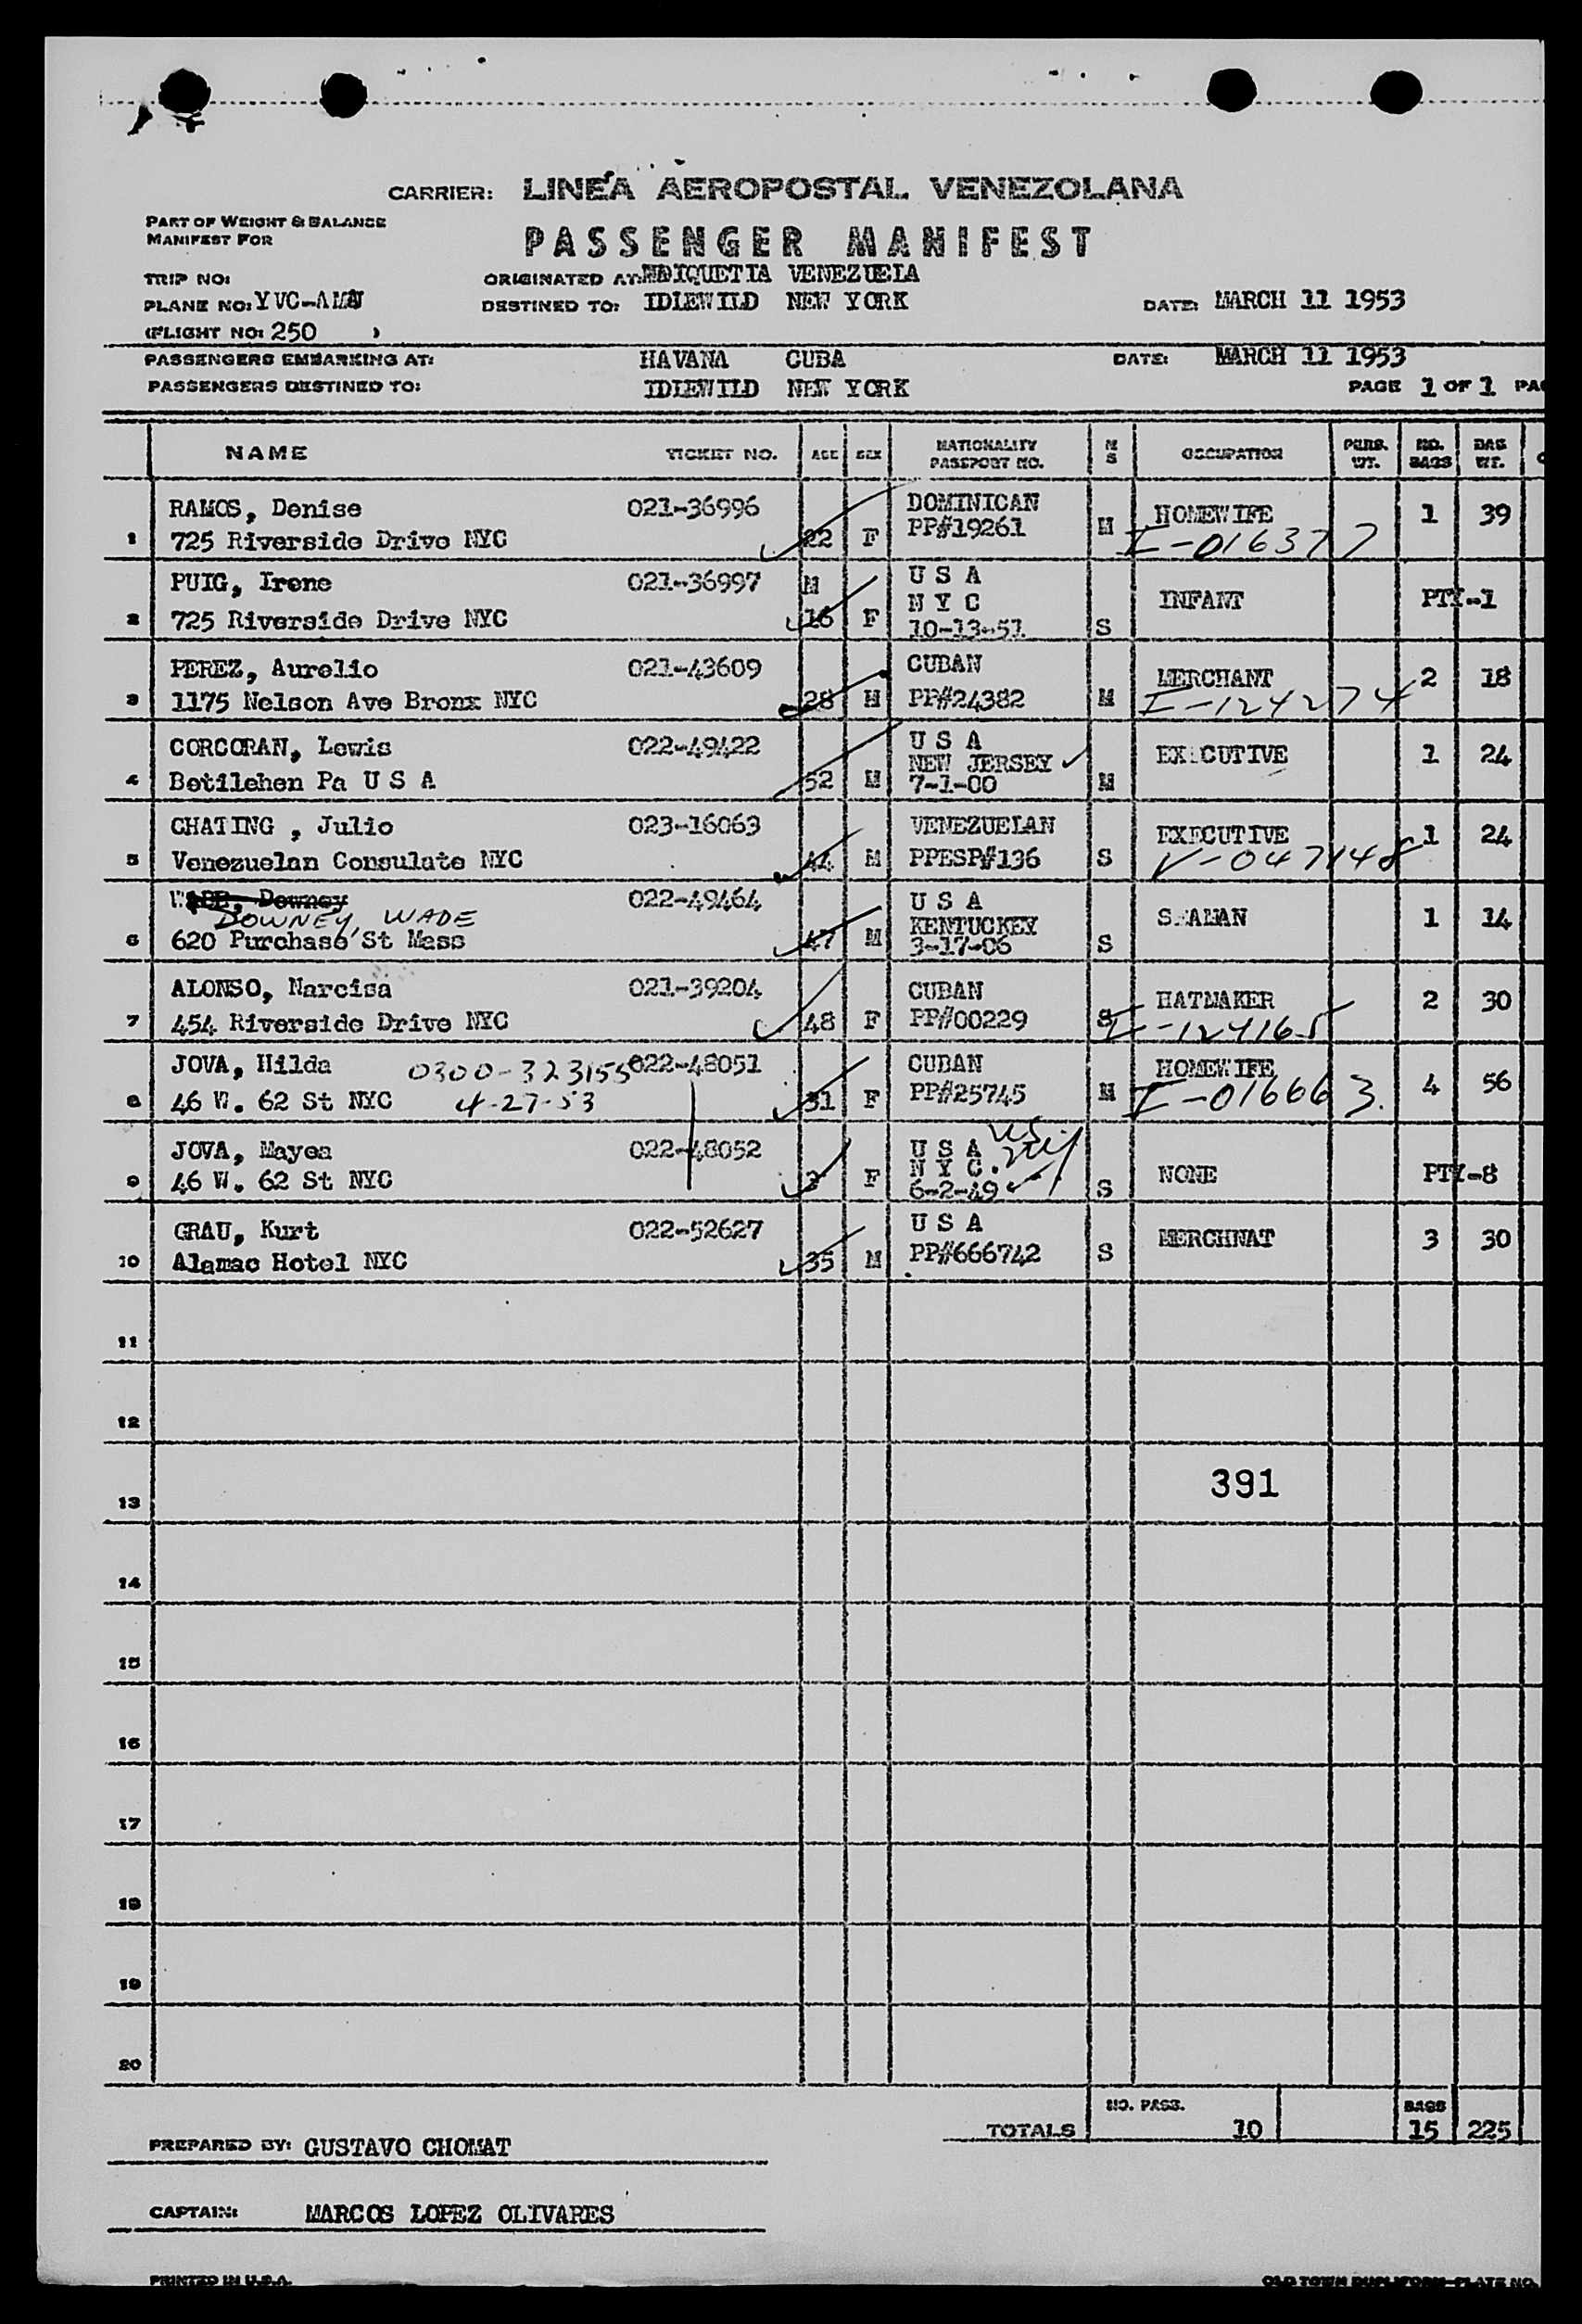 CARRIER: LINEA AEROPOSTAL VENEZOLANA
PART OF WEIGHT & BALANCE
MANIFEST FOR
PASSENGER MANIFEST
TRIP NO:
ORIGINATED AT: VENEZUELA
PLANE NO:
DESTINED TO: IDLEWILD NEW YORK
DATE: MARCH 11 1953
(FLIGHT NO: 250 )
PASSENGERS EMBARKING AT: HAVANA CUBA DATE: MARCH 11 1953
PASSENGERS DESTINED TO: IDLEWILD NEW YORK PAGE 1 OF 1
NAME TICKET NO. AGE SEX NATIONALITY PASSPORT NO. M S OCCUPATION PERS. WT. NO. BAGS BAG WT.
1 RAMOS, Denise 021-36996 DOMINICAN HOMEWIFE 1 39
725 Riverside Drive NYC 22 F PP#19261 M I-016377
2 PUIG, Irene 021-36997 M U S A INFANT PTY-1
725 Riverside Drive NYC 16 F N Y C
10-13-51 S
3 PEREZ, Aurelio 021-43609 CUBAN MERCHANT 2 18
1175 Nelson Ave Bronx NYC 28 M PP#24382 M I-124274
4 CORCORAN, Lewis 022-49422 U S A EXECUTIVE 1 24
NEW JERSEY
Betilehen Pa U S A 52 M 7-1-00 M
5 CHATING , Julio 023-16063 VENEZUELAN EXECUTIVE 1 24
Venezuelan Consulate NYC 44 M PPESP#136 S V-047148
6 Downey 022-49464 U S A 1 14
DOWNEY, WADE KENTUCKEY
620 Purchase St Mass 47 M 3-17-06 S
7 ALONSO, Narcisa 021-39204 CUBAN HATMAKER 2 30
454 Riverside Drive NYC 48 F PP#00229 S
8 JOVA, Hilda 0300-323155 022-48051 CUBAN HOMEWIFE 4 56
46 W. 62 St NYC 4-27-53 31 F PP#25745 M I-016663.
9 JOVA, Mayea 022-48052 U S A NONE PTY-8
N Y C.
46 W. 62 St NYC 3 F 6-2-49 S
10 GRAU, Kurt 022-52627 U S A MERCHNAT 3 30
Alamac Hotel NYC 35 M PP#666742 S
11
12
13 391
14
15
16
17
18
19
20
TOTALS NO. PASS. 10 BAGS 15 225
PREPARED BY: GUSTAVO CHOMAT
CAPTAIN: MARCOS LOPEZ OLIVARES
PRINTED IN U.S.A.